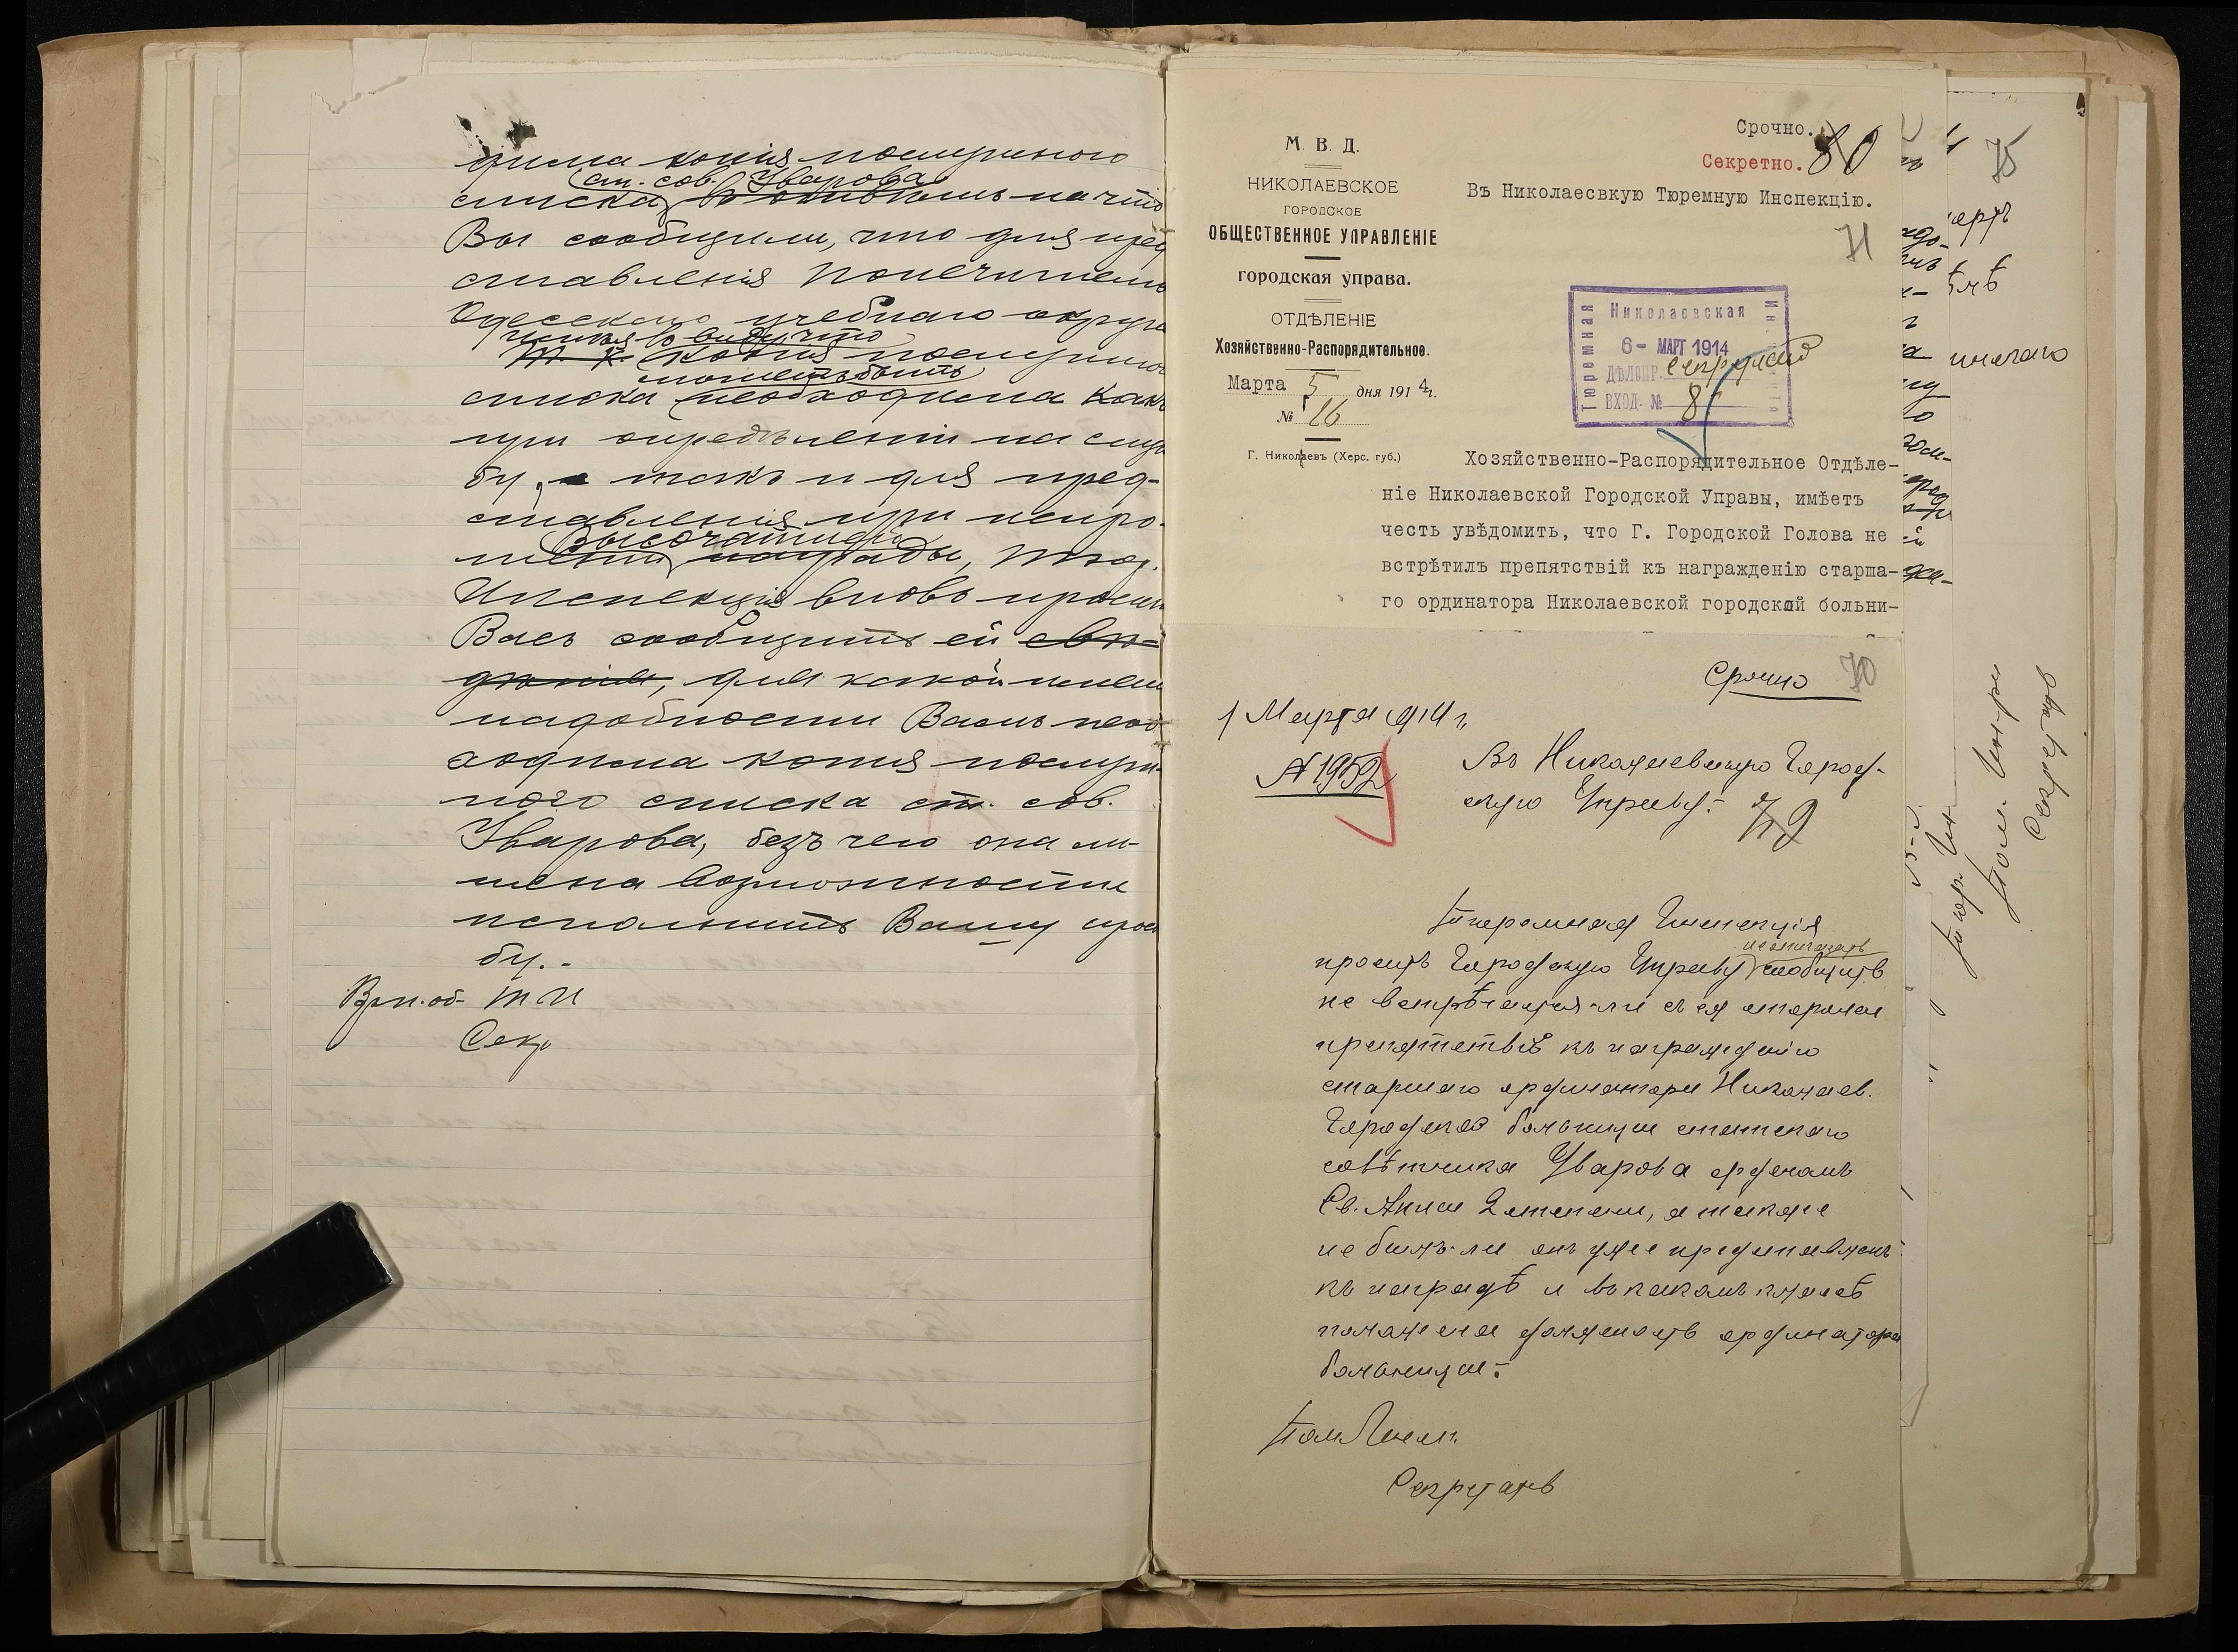 дима копія послужного
списка
ст. сов. Уварова
на что
Вы сообщили, что для пред
ставленія Попечителю
Одесскаго учебнаго округа
имѣя въ виду, что
т. к. копія послужного
можетъ быть
списка необходима какъ
при опредѣленіи на служ
бу, а такъ и для пред-
ставленія при испро-
Высочайшей
шеніи награды, Тюр.
Инспекція вновь просит
Васъ сообщить ей свѣ-
дѣнія, для какой именно
надобности Вамъ необ
ходима копія послуж-
ного списка ст. сов.
Уварова, безъ чего она ли-
шена возможности
исполнить Вашу прось
бу.-
Врп. об- Т И
Секр
Срочно.
80
Секретно.
М. В. Д.
НИКОЛАЕВСКОЕ
ГОРОДСКОЕ
ОБЩЕСТВЕННОЕ УПРАВЛЕНІЕ
городская управа.
ОТДѢЛЕНІЕ
Хозяйственно-Распорядительное.
Марта 5 дня 1914 г.
№ 16
Г. Николаевъ (Херс. губ.)
Въ Николаесвкую Тюремную Инспекцію.
71
Николаевская
Тюремная
6- МАРТ 1914
ДѢЛОПР.
ВХОД. № 8
Хозяйственно-Распорядительное Отдѣле-
ніе Николаевской Городской Управы, имѣетъ
честь увѣдомить, что Г. Городской Голова не
встрѣтилъ препятствій къ награжденію старша-
го ординатора Николаевской городской больни-
Срочно 70
1 Марта 1914 г.
№ 1952
Въ Николаевскую Город-
скую Управу.
79
Тюремная Инспекція
проситъ Городскую Управу сообщить
не встрѣчается-ли съ ея стороны
препятствій къ награжденію
старшаго ординатора Николаев.
Городской больницы статскаго
совѣтника Уварова орденомъ
Св. Анны 2 степени, а также
не былъ-ли онъ уже представленъ
къ наградѣ и въ какомъ классѣ
положена должность ординатора
больницы.
Пом Инсп.
Секретарь
75
Тюр. Ин
Пом. Инсп
Секретарь